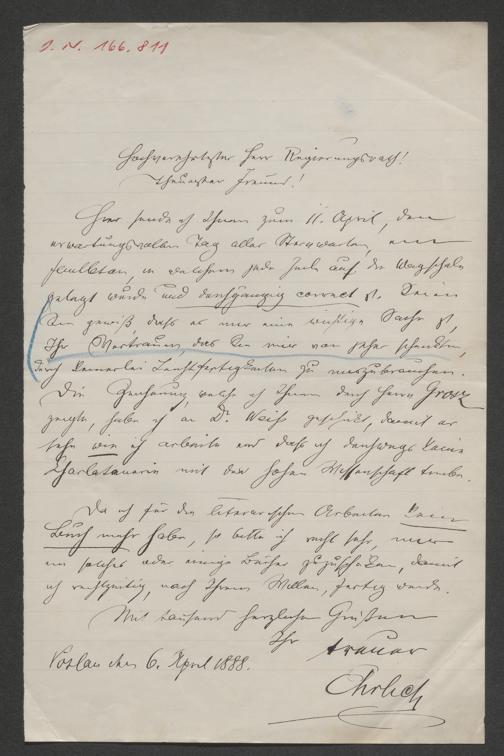 I. N. 166.811
Hochverehrtester Herr Regierungsrath!
Theuerster Freund!
Hier sende ich Ihnen zum 11. April, dem
erwartungsvollen Tag aller Sternwarten, ein
Feuilleton, in welchem jede Zeile auf die Wagschale
gelegt wurde und durchgängig correct ist. Seien
Sie gewiß, daß es mir eine wichtige Sache ist,
Ihr Vertrauen, das Sie mir von jeher schenkten
durch keinerlei Leichtfertigkeiten zu missbrauchen.
Die Zeichnung welche ich Ihnen durch Herrn Grosz
zeigte, habe ich an Dr. Weiß geschickt, damit er
sehe wie ich arbeite und daß ich durchwegs keine
Charlatanerie mit der hohen Wissenschaft treibe.
Da ich für die literarischen Arbeiten kein
Buch mehr habe, so bitte ich recht sehr, mir
ein solches oder einige Bücher zuzuschicken, damit
ich rechtzeitig, nach Ihrem Willen, fertig werde.
Mit tausend herzlichen Grüßen
Ihr treuer
Vöslau den 6. April 1888.
Ehrlich